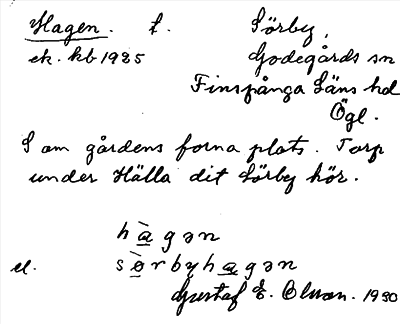 Hagen. t. Sörby,
ek. kb 1925 Godegårds sn
Finspånga Läns hd
Ögl.
S om gårdens forna plats. Torp
under Hälla dit Sörby hör.
hàgən
el. sə̀rbyhagən
Gustaf E. Olsson. 1930